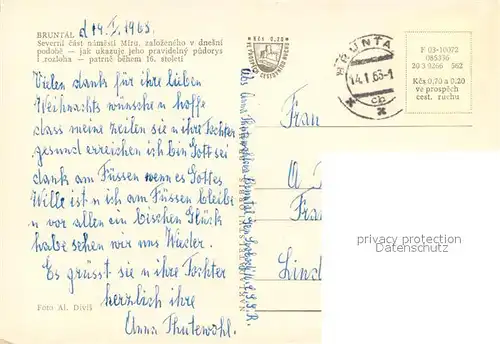 BRUNTÁL
d 14. I. 1968.
Severní část náměstí Míru, založeného v dnešní
podobě — jak ukazuje jeho pravidelný půdorys
i rozloha — patrně během 16. století
Vielen dank für ihre lieben
Weihnachts wünsche u hoffe
dass meine zeilen sie u ihre Tochter
gesund erreichen ich bin Gott sei
dank am Füssen wenn es Gottes
Wille ist u ich am Füssen bleibe
u vor allen ein bischen Glück
habe sehen wir uns Wieder.
Es grüsst sie u ihre Tochter
herzlich ihre
Anna Thutewohl.
Foto Al. Diviš
Abs Anna Bruntál Č.S.S.R.
Kčs 0,20
VE PROSPĚCH CESTOVNÍHO RUCHU
BRUNTÁ
14.1.68-1
cb
F 03-10072
085336
20 3 0266 562
Kčs 0,70 a 0.20
ve prospěch
cest. ruchu
Frau
A
Fra
Lind
privacy protection
Datenschutz